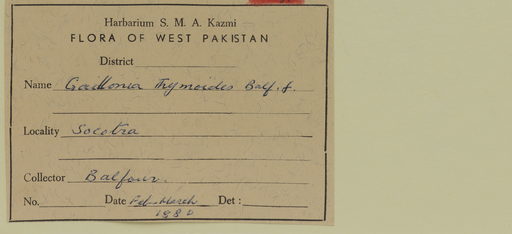 Harbarium S. M. A. Kazmi
FLORA OF WEST PAKISTAN
District
Name Gaillonia Thymoides Balf. f.
Locality Socotra
Collector Balfour.
No. Date Feb-March Det :
1880